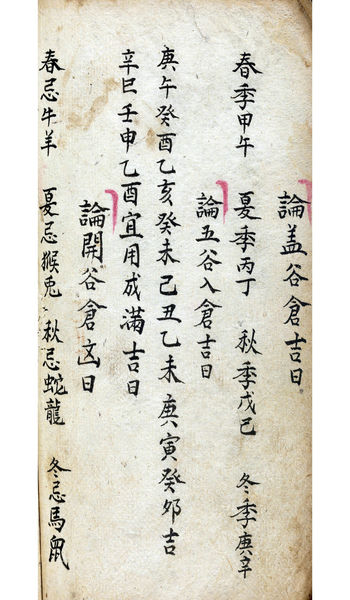 論盖谷倉吉日
春季甲午 夏季丙丁 秋季戊己 冬季庚辛
論五谷入倉吉日
庚午癸酉乙亥癸未己丑乙未庚寅癸卯吉
辛巳壬申乙酉宜用成滿吉日
論開谷倉凶日
春忌牛羊 夏忌猴兎 秋忌蛇龍 冬忌馬鼠